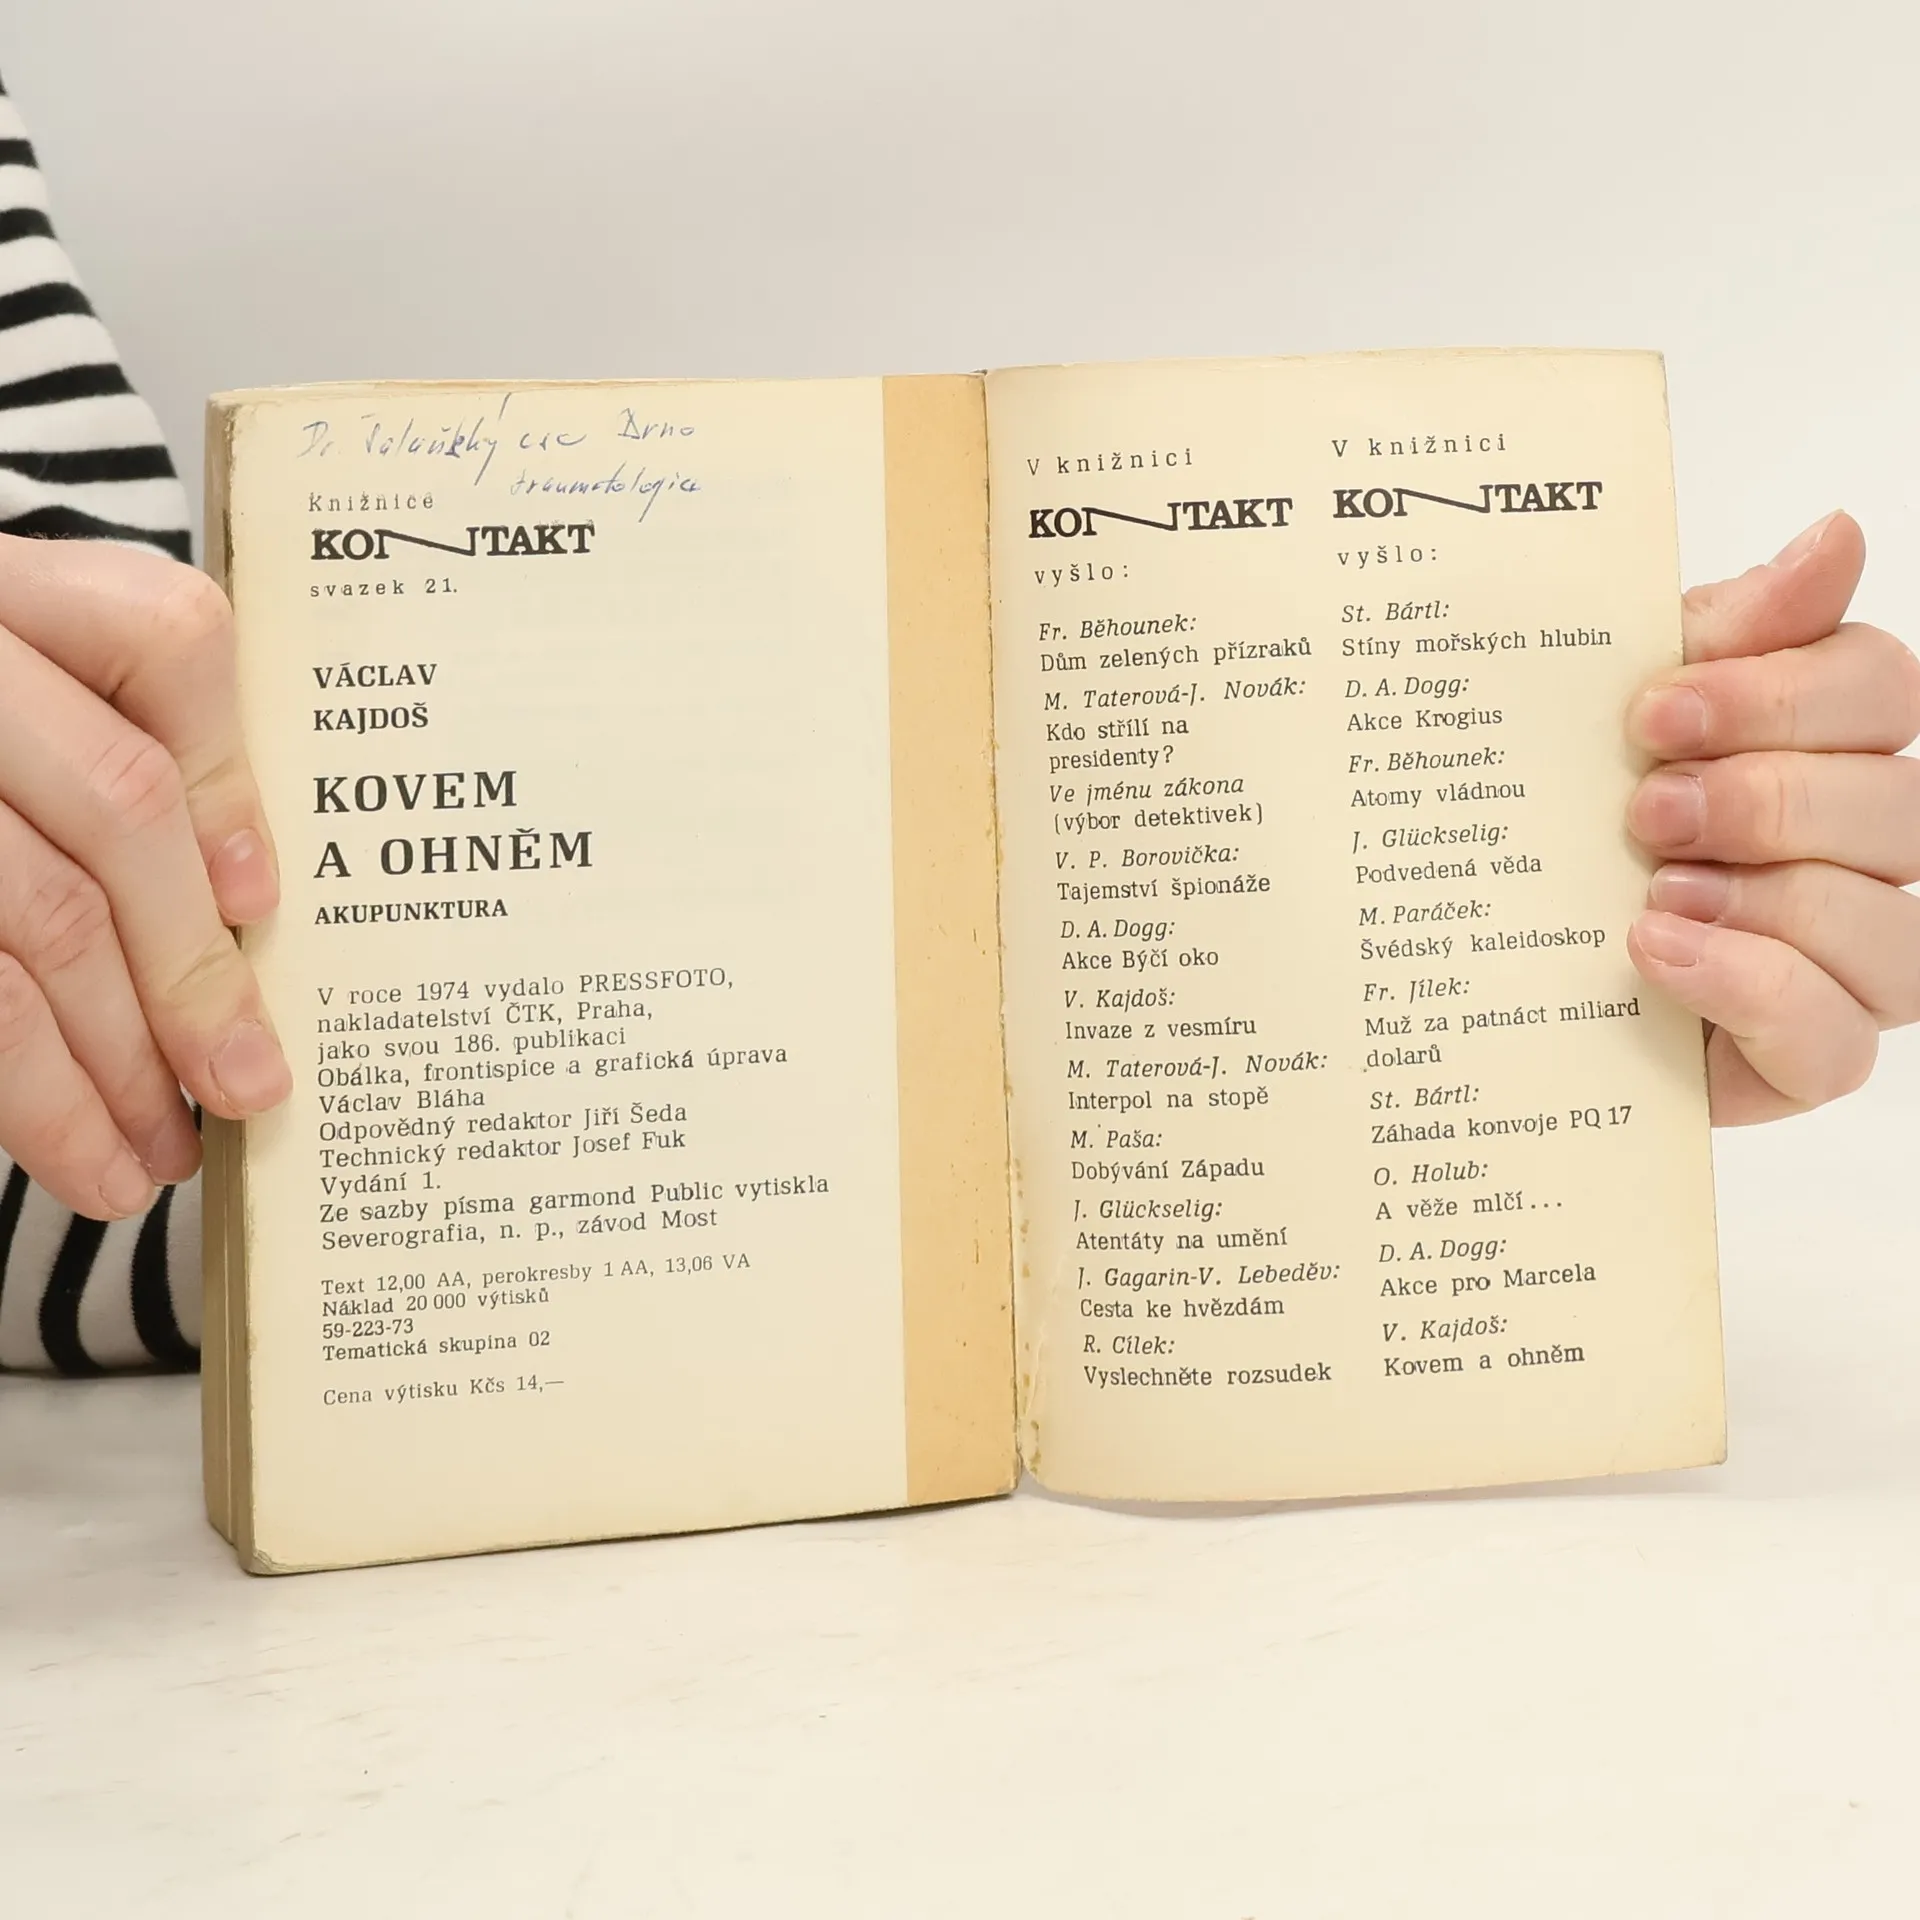 Dr. csc Brno
traumatologica
Knižnice
KONTAKT
svazek 21.
VÁCLAV
KAJDOŠ
KOVEM
A OHNĚM
AKUPUNKTURA
V roce 1974 vydalo PRESSFOTO,
nakladatelství ČTK, Praha,
jako svou 186. publikaci
Obálka, frontispice a grafická úprava
Václav Bláha
Odpovědný redaktor Jiří Šeda
Technický redaktor Josef Fuk
Vydání 1.
Ze sazby písma garmond Public vytiskla
Severografia, n. p., závod Most
Text 12,00 AA, perokresby 1 AA, 13,06 VA
Náklad 20 000 výtisků
59-223-73
Tematická skupina 02
Cena výtisku Kčs 14,—
V knižnici
KONTAKT
vyšlo:
Fr. Běhounek:
Dům zelených přízraků
M. Taterová-J. Novák:
Kdo střílí na
presidenty?
Ve jménu zákona
(výbor detektivek)
V. P. Borovička:
Tajemství špionáže
D. A. Dogg:
Akce Býčí oko
V. Kajdoš:
Invaze z vesmíru
M. Taterová-J. Novák:
Interpol na stopě
M. Paša:
Dobývání Západu
J. Glückselig:
Atentáty na umění
J. Gagarin-V. Lebeděv:
Cesta ke hvězdám
R. Cílek:
Vyslechněte rozsudek
V knižnici
KONTAKT
vyšlo:
St. Bártl:
Stíny mořských hlubin
D. A. Dogg:
Akce Krogius
Fr. Běhounek:
Atomy vládnou
J. Glückselig:
Podvedená věda
M. Paráček:
Švédský kaleidoskop
Fr. Jílek:
Muž za patnáct miliard
dolarů
St. Bártl:
Záhada konvoje PQ 17
O. Holub:
A věže mlčí...
D. A. Dogg:
Akce pro Marcela
V. Kajdoš:
Kovem a ohněm